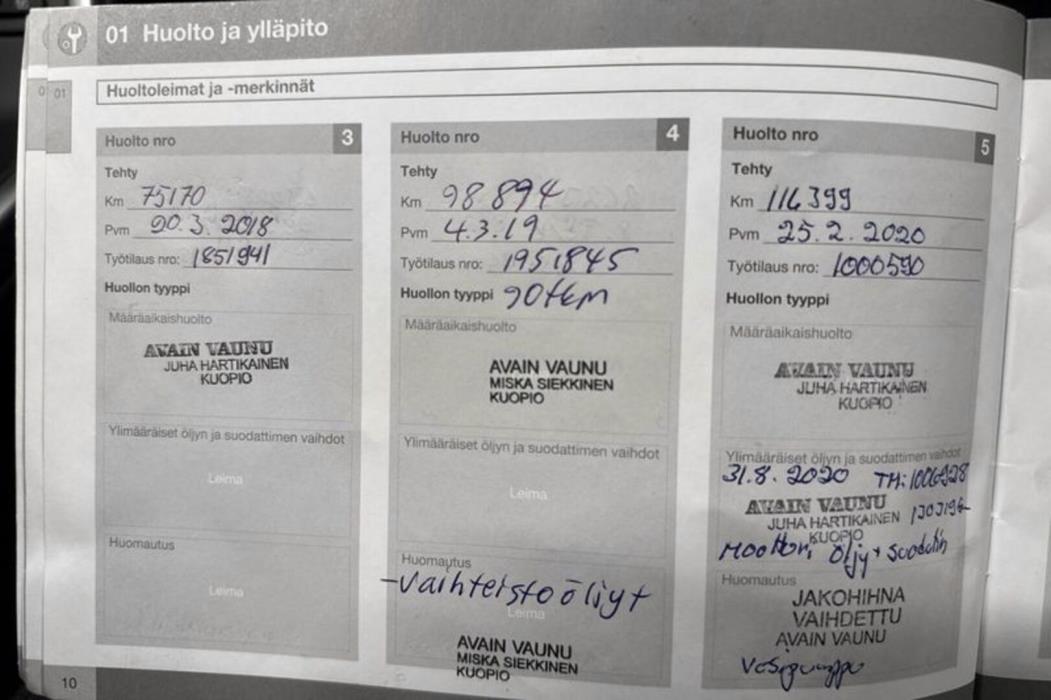 01 Huolto ja ylläpito
01
Huoltoleimat ja -merkinnät
Huolto nro 3
Tehty
Km 75170
Pvm 20.3.2018
Työtilaus nro: 1851941
Huollon tyyppi
Määräaikaishuolto
AVAIN VAUNU
JUHA HARTIKAINEN
KUOPIO
Ylimääräiset öljyn ja suodattimen vaihdot
Leima
Huomautus
Leima
Huolto nro 4
Tehty
Km 98.894
Pvm 4.3.19
Työtilaus nro: 1951845
Huollon tyyppi 90tkm
Määräaikaishuolto
AVAIN VAUNU
MISKA SIEKKINEN
KUOPIO
Ylimääräiset öljyn ja suodattimen vaihdot
Leima
Huomautus
-Vaihteistoöljyt
Leima
AVAIN VAUNU
MISKA SIEKKINEN
KUOPIO
Huolto nro 5
Tehty
Km 116399
Pvm 25.2.2020
Työtilaus nro: 1000590
Huollon tyyppi
Määräaikaishuolto
AVAIN VAUNU
JUHA HARTIKAINEN
KUOPIO
Ylimääräiset öljyn ja suodattimen vaihdot
31.8.2020
AVAIN VAUNU
JUHA HARTIKAINEN
KUOPIO
Moottori öljy + suodatin
Huomautus
JAKOHIHNA
VAIHDETTU
AVAIN VAUNU
Vesipumppu
10